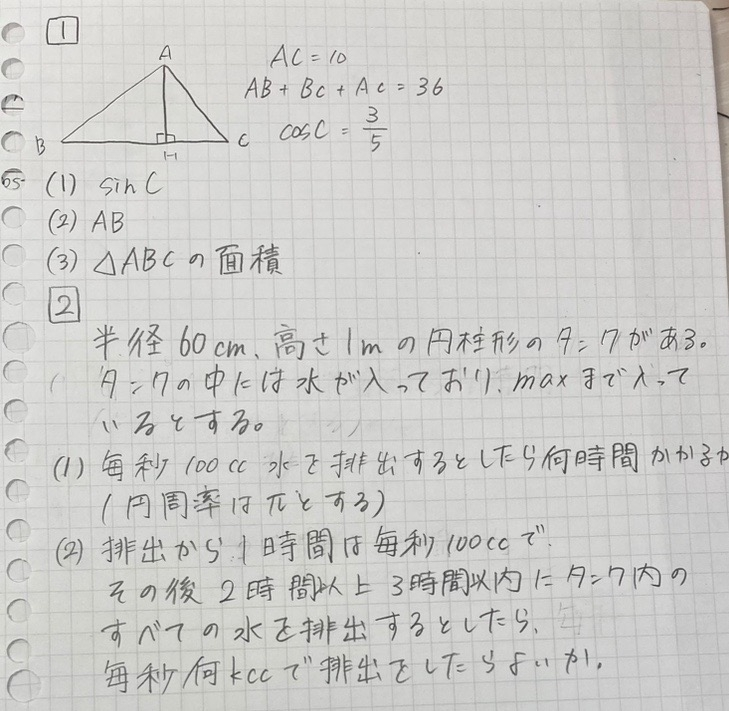 1
A
B
H
C
AC = 10
AB + BC + AC = 36
cosC = 3/5
(1) sin C
(2) AB
(3) △ABCの面積
2
半径60cm、高さ1mの円柱形のタンクがある。
タンクの中には水が入っており、maxまで入って
いるとする。
(1) 毎秒100cc水を排出するとしたら何時間かかるか
(円周率はπとする)
(2) 排出から1時間は毎秒100ccで、
その後2時間以上3時間以内にタンク内の
すべての水を排出するとしたら、
毎秒何kccで排出をしたらよいか。